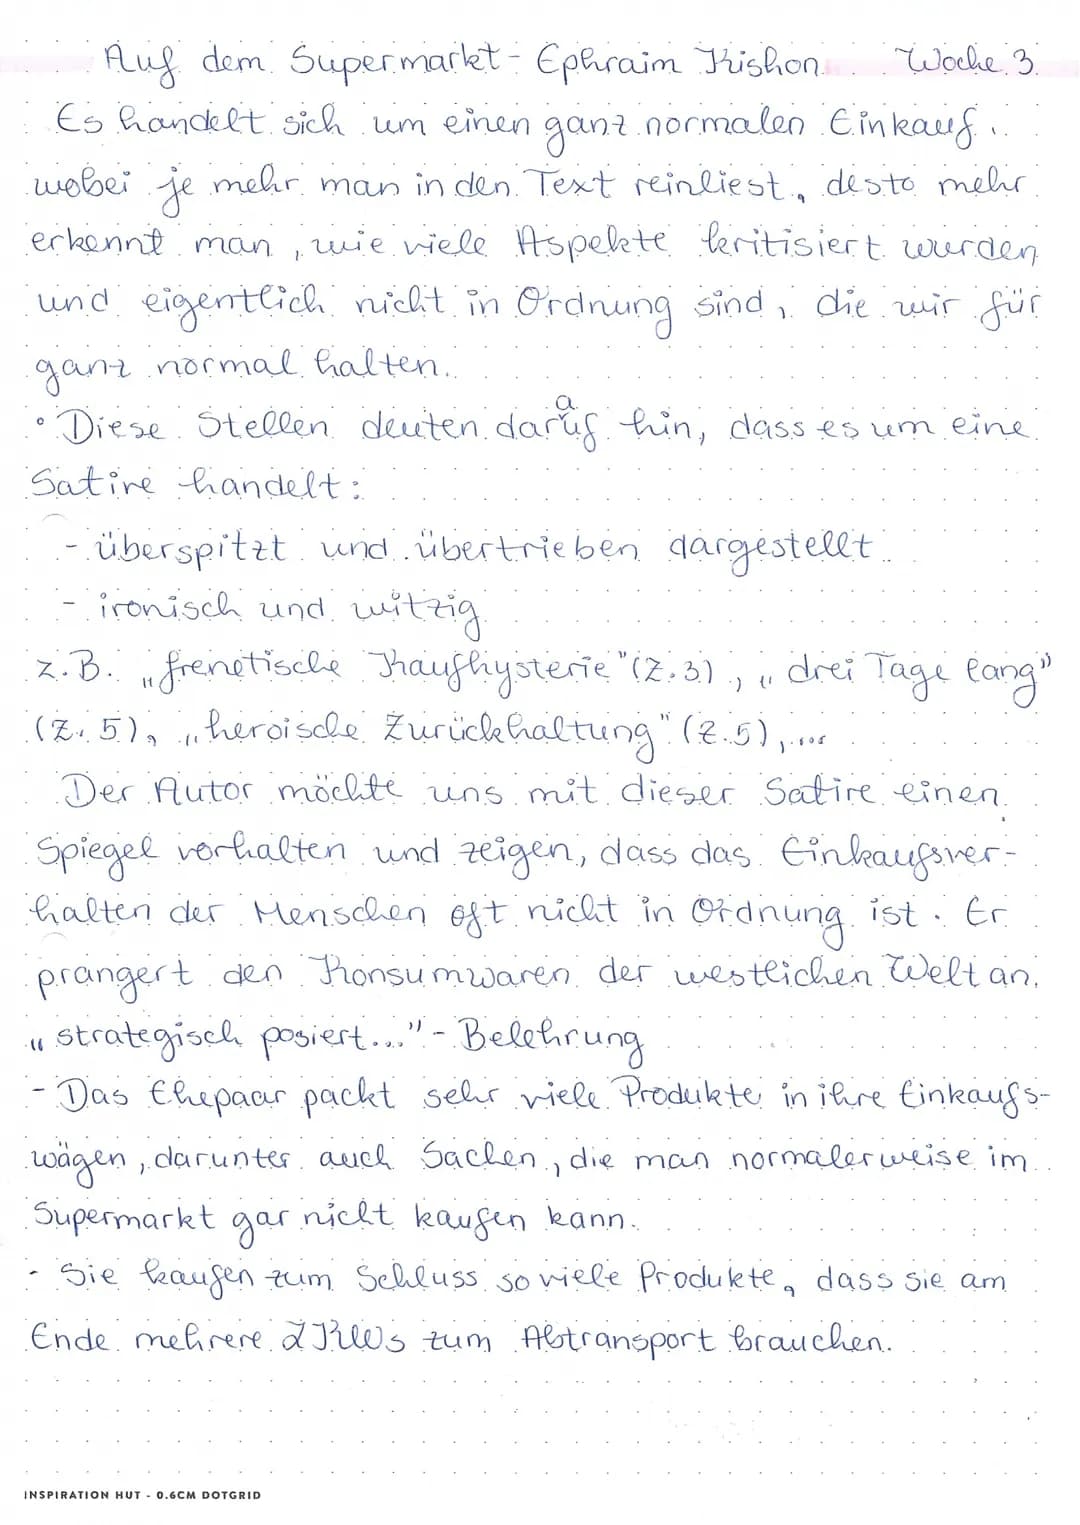 Auf dem Supermarkt - Ephraim Kishon Woche 3
Es handelt sich um einen ganz normalen Einkauf,
wobei je mehr man in den Text reinliest, desto mehr
erkennt man, wie viele Aspekte kritisiert wurden
und eigentlich nicht in Ordnung sind, die wir für
ganz normal halten.
• Diese Stellen deuten darauf hin, dass es um eine
Satire handelt:
- überspitzt und übertrieben dargestellt
- ironisch und witzig
z.B. „frenetische Kaufhysterie" (Z.3), „drei Tage lang"
(Z. 5), „heroische Zurückhaltung" (Z.5), ...
Der Autor möchte uns mit dieser Satire einen
Spiegel vorhalten und zeigen, dass das Einkaufsver-
halten der Menschen oft nicht in Ordnung ist. Er
prangert den Konsumwaren der westlichen Welt an.
„strategisch posiert..." - Belehrung
- Das Ehepaar packt sehr viele Produkte in ihre Einkaufs-
wägen, darunter auch Sachen, die man normalerweise im
Supermarkt gar nicht kaufen kann.
- Sie kaufen zum Schluss so viele Produkte, dass sie am
Ende mehrere LKWs zum Abtransport brauchen.
INSPIRATION HUT - 0.6CM DOTGRID